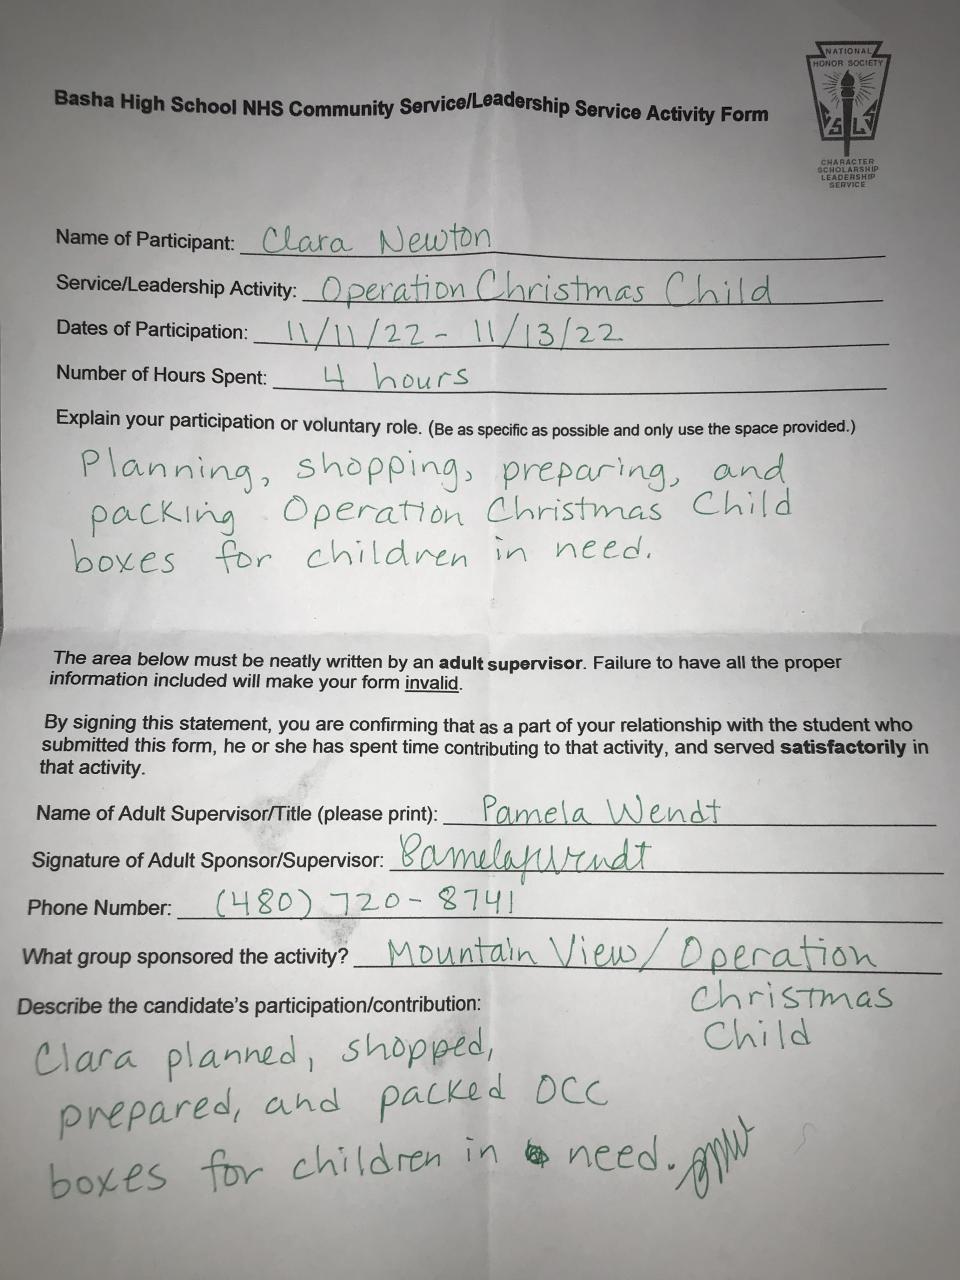 NATIONAL
HONOR SOCIETY
CHARACTER
SCHOLARSHIP
LEADERSHIP
SERVICE
Basha High School NHS Community Service/Leadership Service Activity Form
Name of Participant: Clara Newton
Service/Leadership Activity: Operation Christmas Child
Dates of Participation: 11/11/22 - 11/13/22
Number of Hours Spent: 4 hours
Explain your participation or voluntary role. (Be as specific as possible and only use the space provided.)
Planning, shopping, preparing, and
packing Operation Christmas Child
boxes for children in need.
The area below must be neatly written by an adult supervisor. Failure to have all the proper
information included will make your form invalid.
By signing this statement, you are confirming that as a part of your relationship with the student who
submitted this form, he or she has spent time contributing to that activity, and served satisfactorily in
that activity.
Name of Adult Supervisor/Title (please print): Pamela Wendt
Signature of Adult Sponsor/Supervisor:
Phone Number: (480) 720-8741
What group sponsored the activity? Mountain View/Operation
Christmas
Child
Describe the candidate's participation/contribution:
Clara planned, shopped,
prepared, and packed OCC
boxes for children in need.